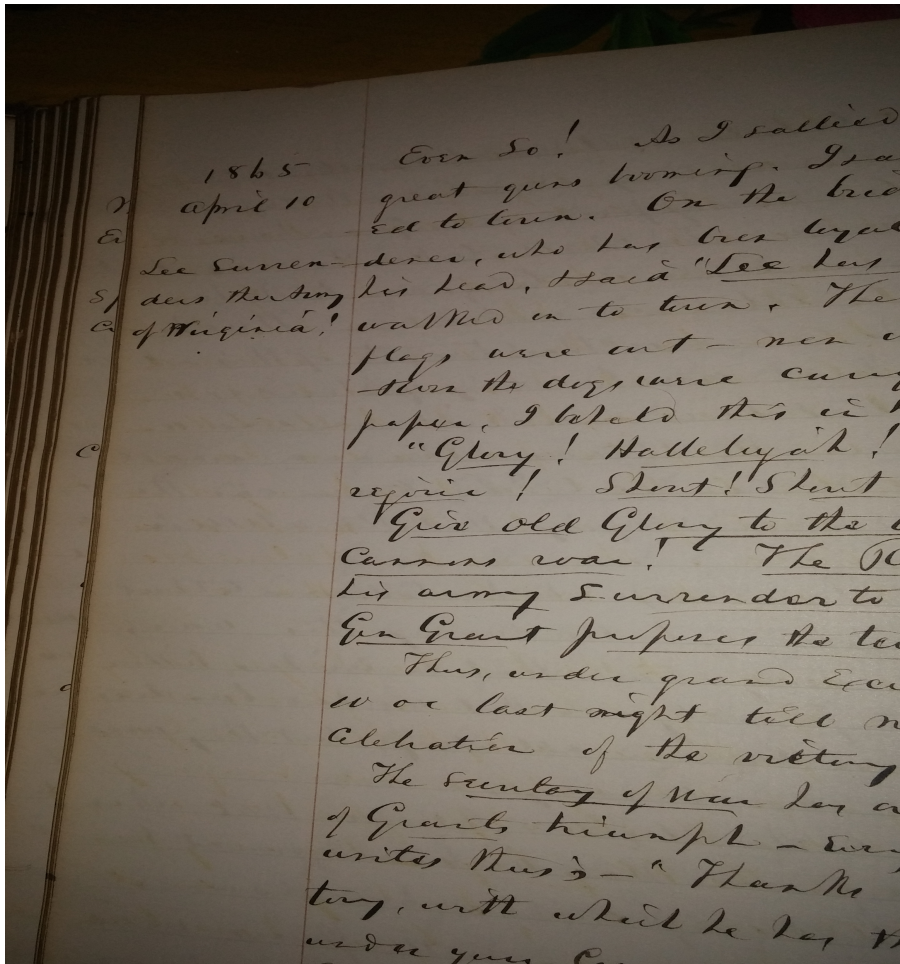 1865
April 10
Lee Surren-
ders the Army
of Virginia!
Even So! As I sallied
great guns booming. I sa
ed to town. On the brid
derer, who has been loyal
his head, & said "Lee has
walked on to town. The
flags were out - men
-tion the dogs were
paper, I beheld this
"Glory! Hallelujah!
rejoice! Shout! Shout
Give old Glory to the
Cannons roar! The
his army Surrender to
Gen Grant proposes the te
Thus, under grand Exci
last night till
Celebration of the victory
The Secretary of War has
of Grants triumph - Even
writes thus: - "Thanks
tory, with which he has
under your